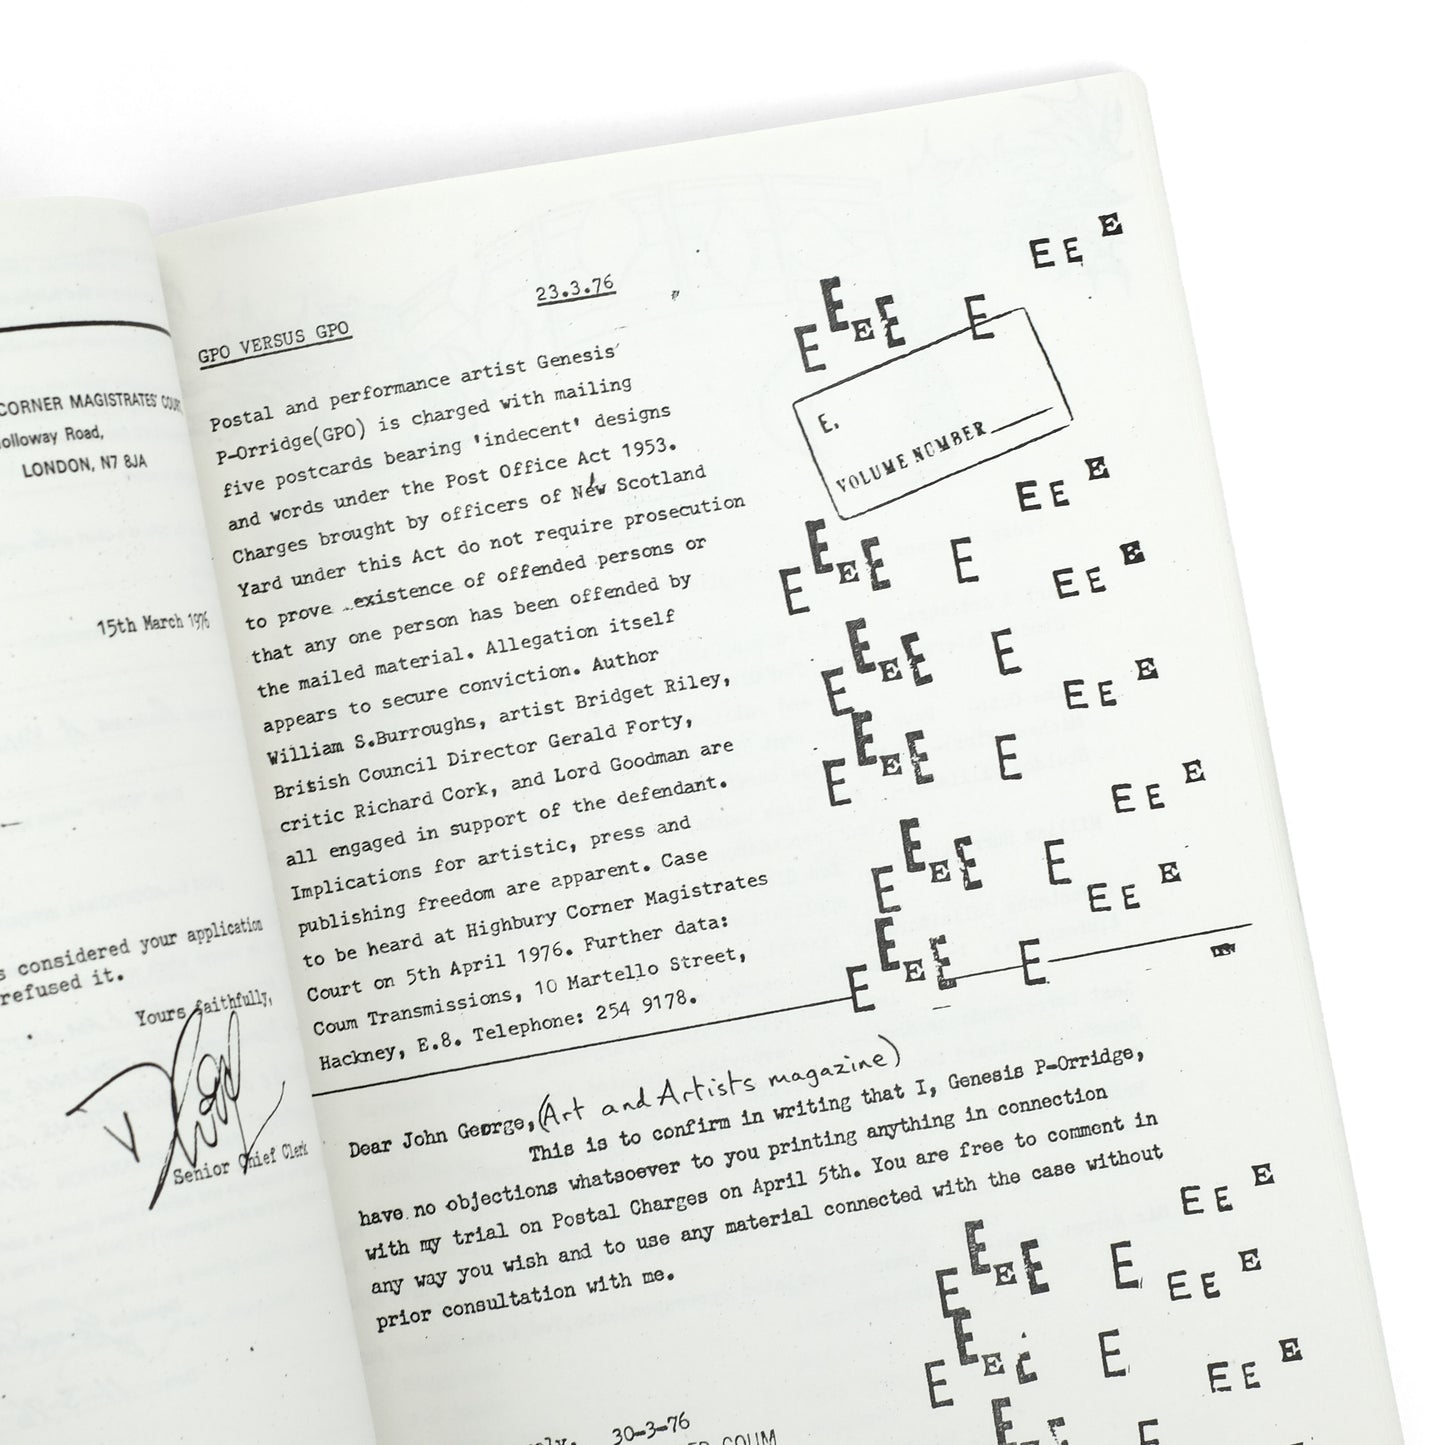 CORNER MAGISTRATES' COURT,
Holloway Road,
LONDON, N7 8JA
15th March 1976
considered your application
refused it.
Yours faithfully,
Senior Chief Clerk
23.3.76
GPO VERSUS GPO
Postal and performance artist Genesis
P-Orridge(GPO) is charged with mailing
five postcards bearing 'indecent' designs
and words under the Post Office Act 1953.
Charges brought by officers of New Scotland
Yard under this Act do not require prosecution
to prove existence of offended persons or
that any one person has been offended by
the mailed material. Allegation itself
appears to secure conviction. Author
William S.Burroughs, artist Bridget Riley,
British Council Director Gerald Forty,
critic Richard Cork, and Lord Goodman are
all engaged in support of the defendant.
Implications for artistic, press and
publishing freedom are apparent. Case
to be heard at Highbury Corner Magistrates
Court on 5th April 1976. Further data:
Coum Transmissions, 10 Martello Street,
Hackney, E.8. Telephone: 254 9178.
E E E
E E E E E
E.
VOLUME NUMBER
E E E
E E E E E
E E E
E E E E E
E E E
E E E E E
E E E
E E E E E
E E E
E E E E E
Dear John George, (Art and Artists magazine)
This is to confirm in writing that I, Genesis P-Orridge,
have no objections whatsoever to you printing anything in connection
with my trial on Postal Charges on April 5th. You are free to comment in
any way you wish and to use any material connected with the case without
prior consultation with me.
E E E
E E E E E
E E E
E E E E E
E E E
30-3-76
COUM